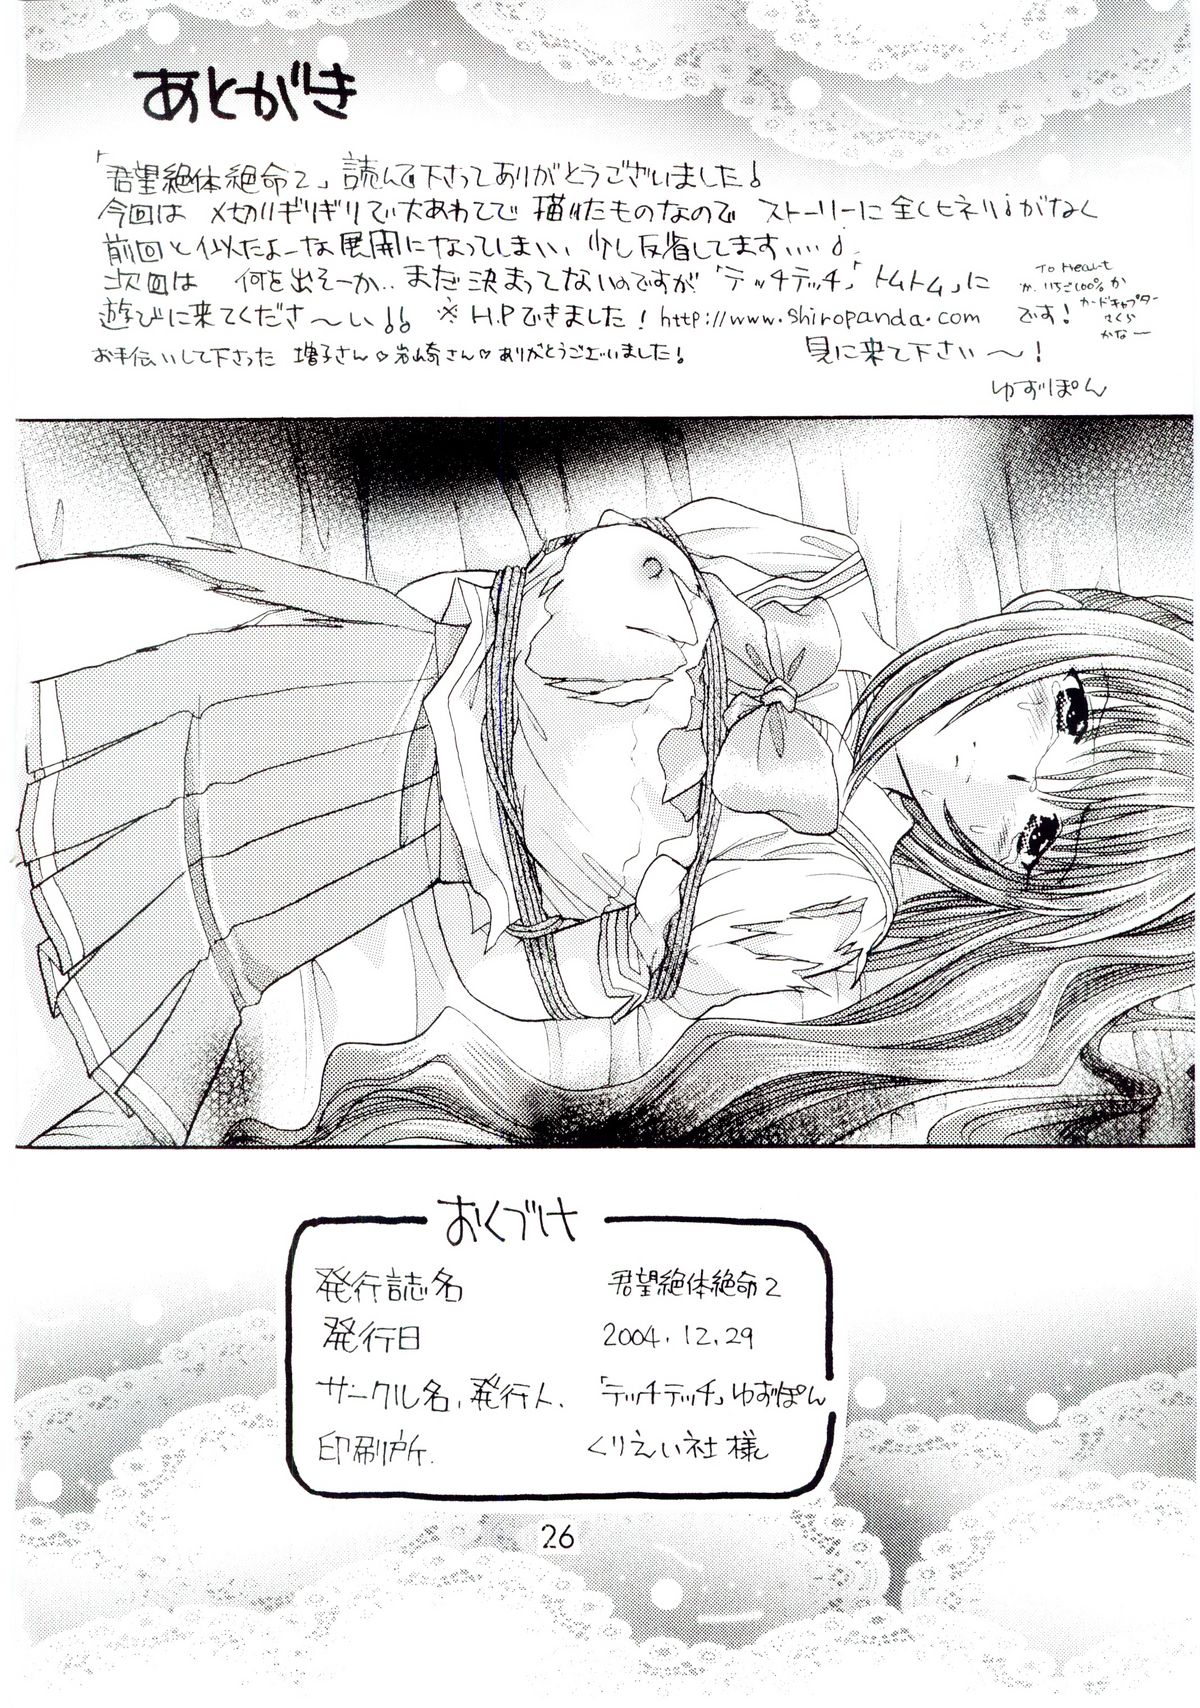 あとがき
「君望絶体絶命2」読んで下さってありがとうございました!
今回は〆切りギリギリで大あわてで描いたものなのでストーリーに全くヒネリがなく
前回と似たよーな展開になってしまい、少し反省してます…。
次回は 何を出そーか‥まだ決まってないのですが「テッチテッチ」「トムトム」に
To Heart
か、いちご100%か
カードキャプター
さくら
かなー
遊びに来てくださ〜い!! ※H.Pできました!http://www.shiropanda.com です!
お手伝いして下さった 増子さん♡岩崎さん♡ありがとうございました! 見に来て下さい〜!
ゆずぽん
おくづけ
発行誌名 君望絶体絶命2
発行日 2004.12.29
サークル名、発行人. 「テッチテッチ」ゆずぽん
印刷所. くりえい社様
26